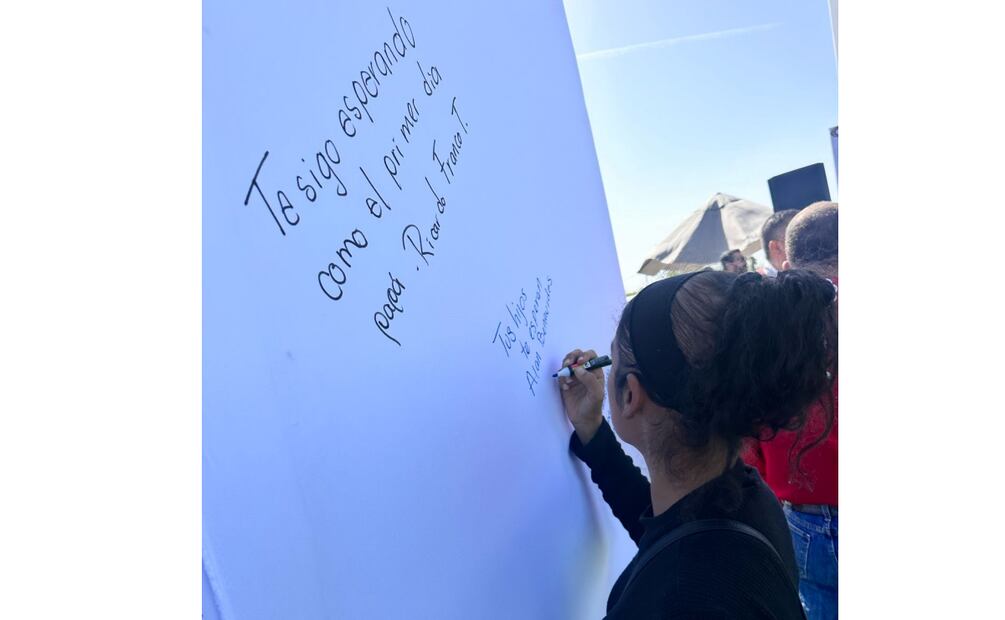 Te sigo esperando
como el primer día
papá. Ricardo Franco T.
Tus hijos
te esperan
Alan Benavides